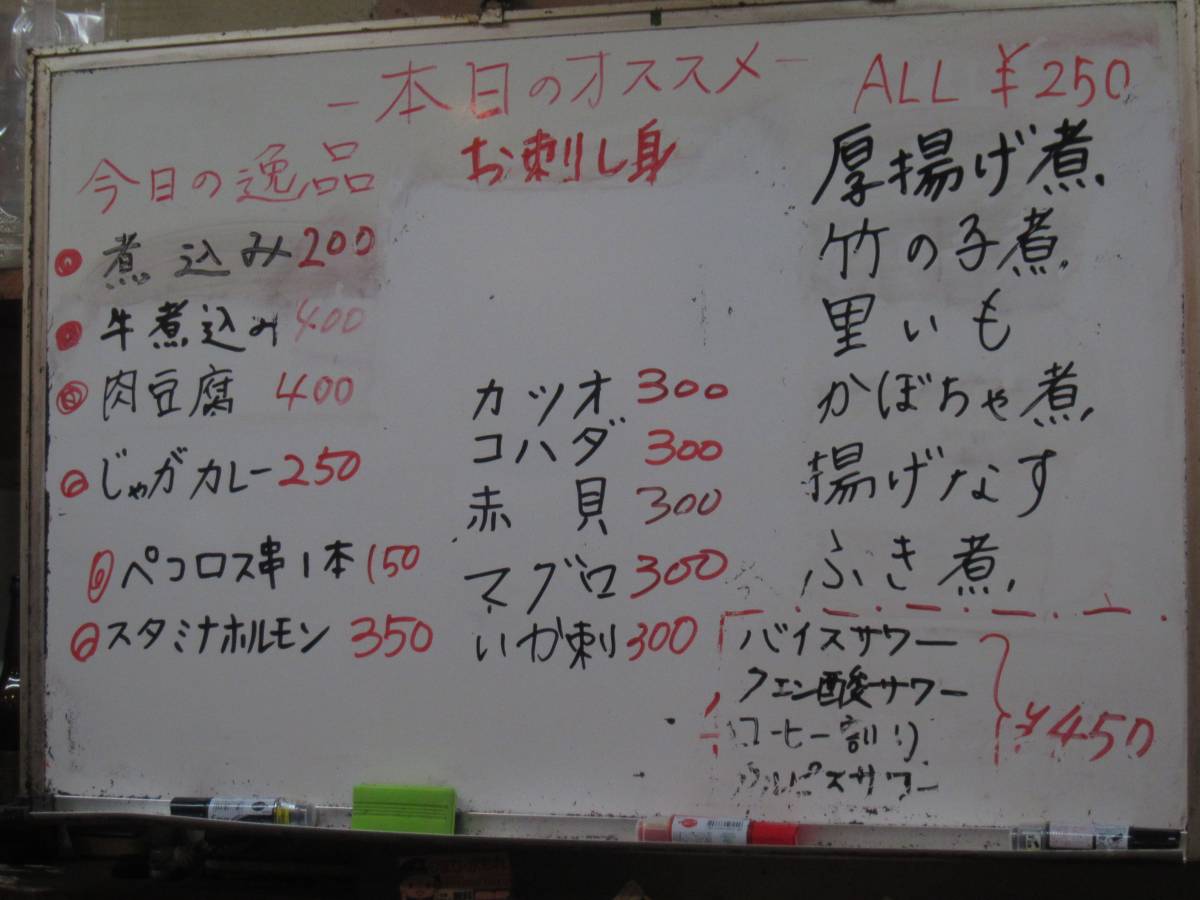 －本日のオススメ－
今日の逸品
煮込み200
牛煮込み400
肉豆腐 400
じゃがカレー250
ペコロス串1本150
スタミナホルモン 350
お刺し身
カツオ 300
コハダ 300
赤貝 300
マグロ300
いか刺300
ALL ¥250
厚揚げ煮
竹の子煮
里いも
かぼちゃ煮
揚げなす
ふき煮
バイスサワー
クエン酸サワー
コーヒー割り
カルピスサワー
¥450